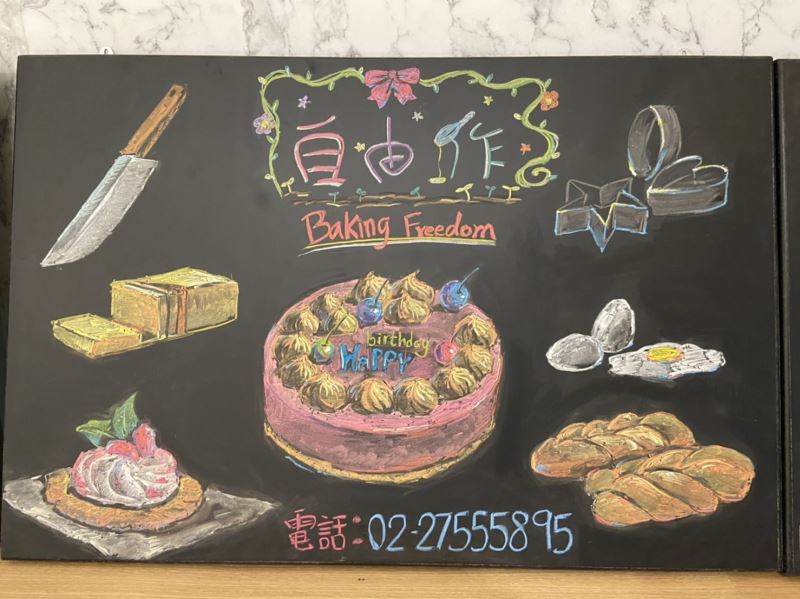 自由作
Baking Freedom
birthday
HAPPY
電話:02-27555895